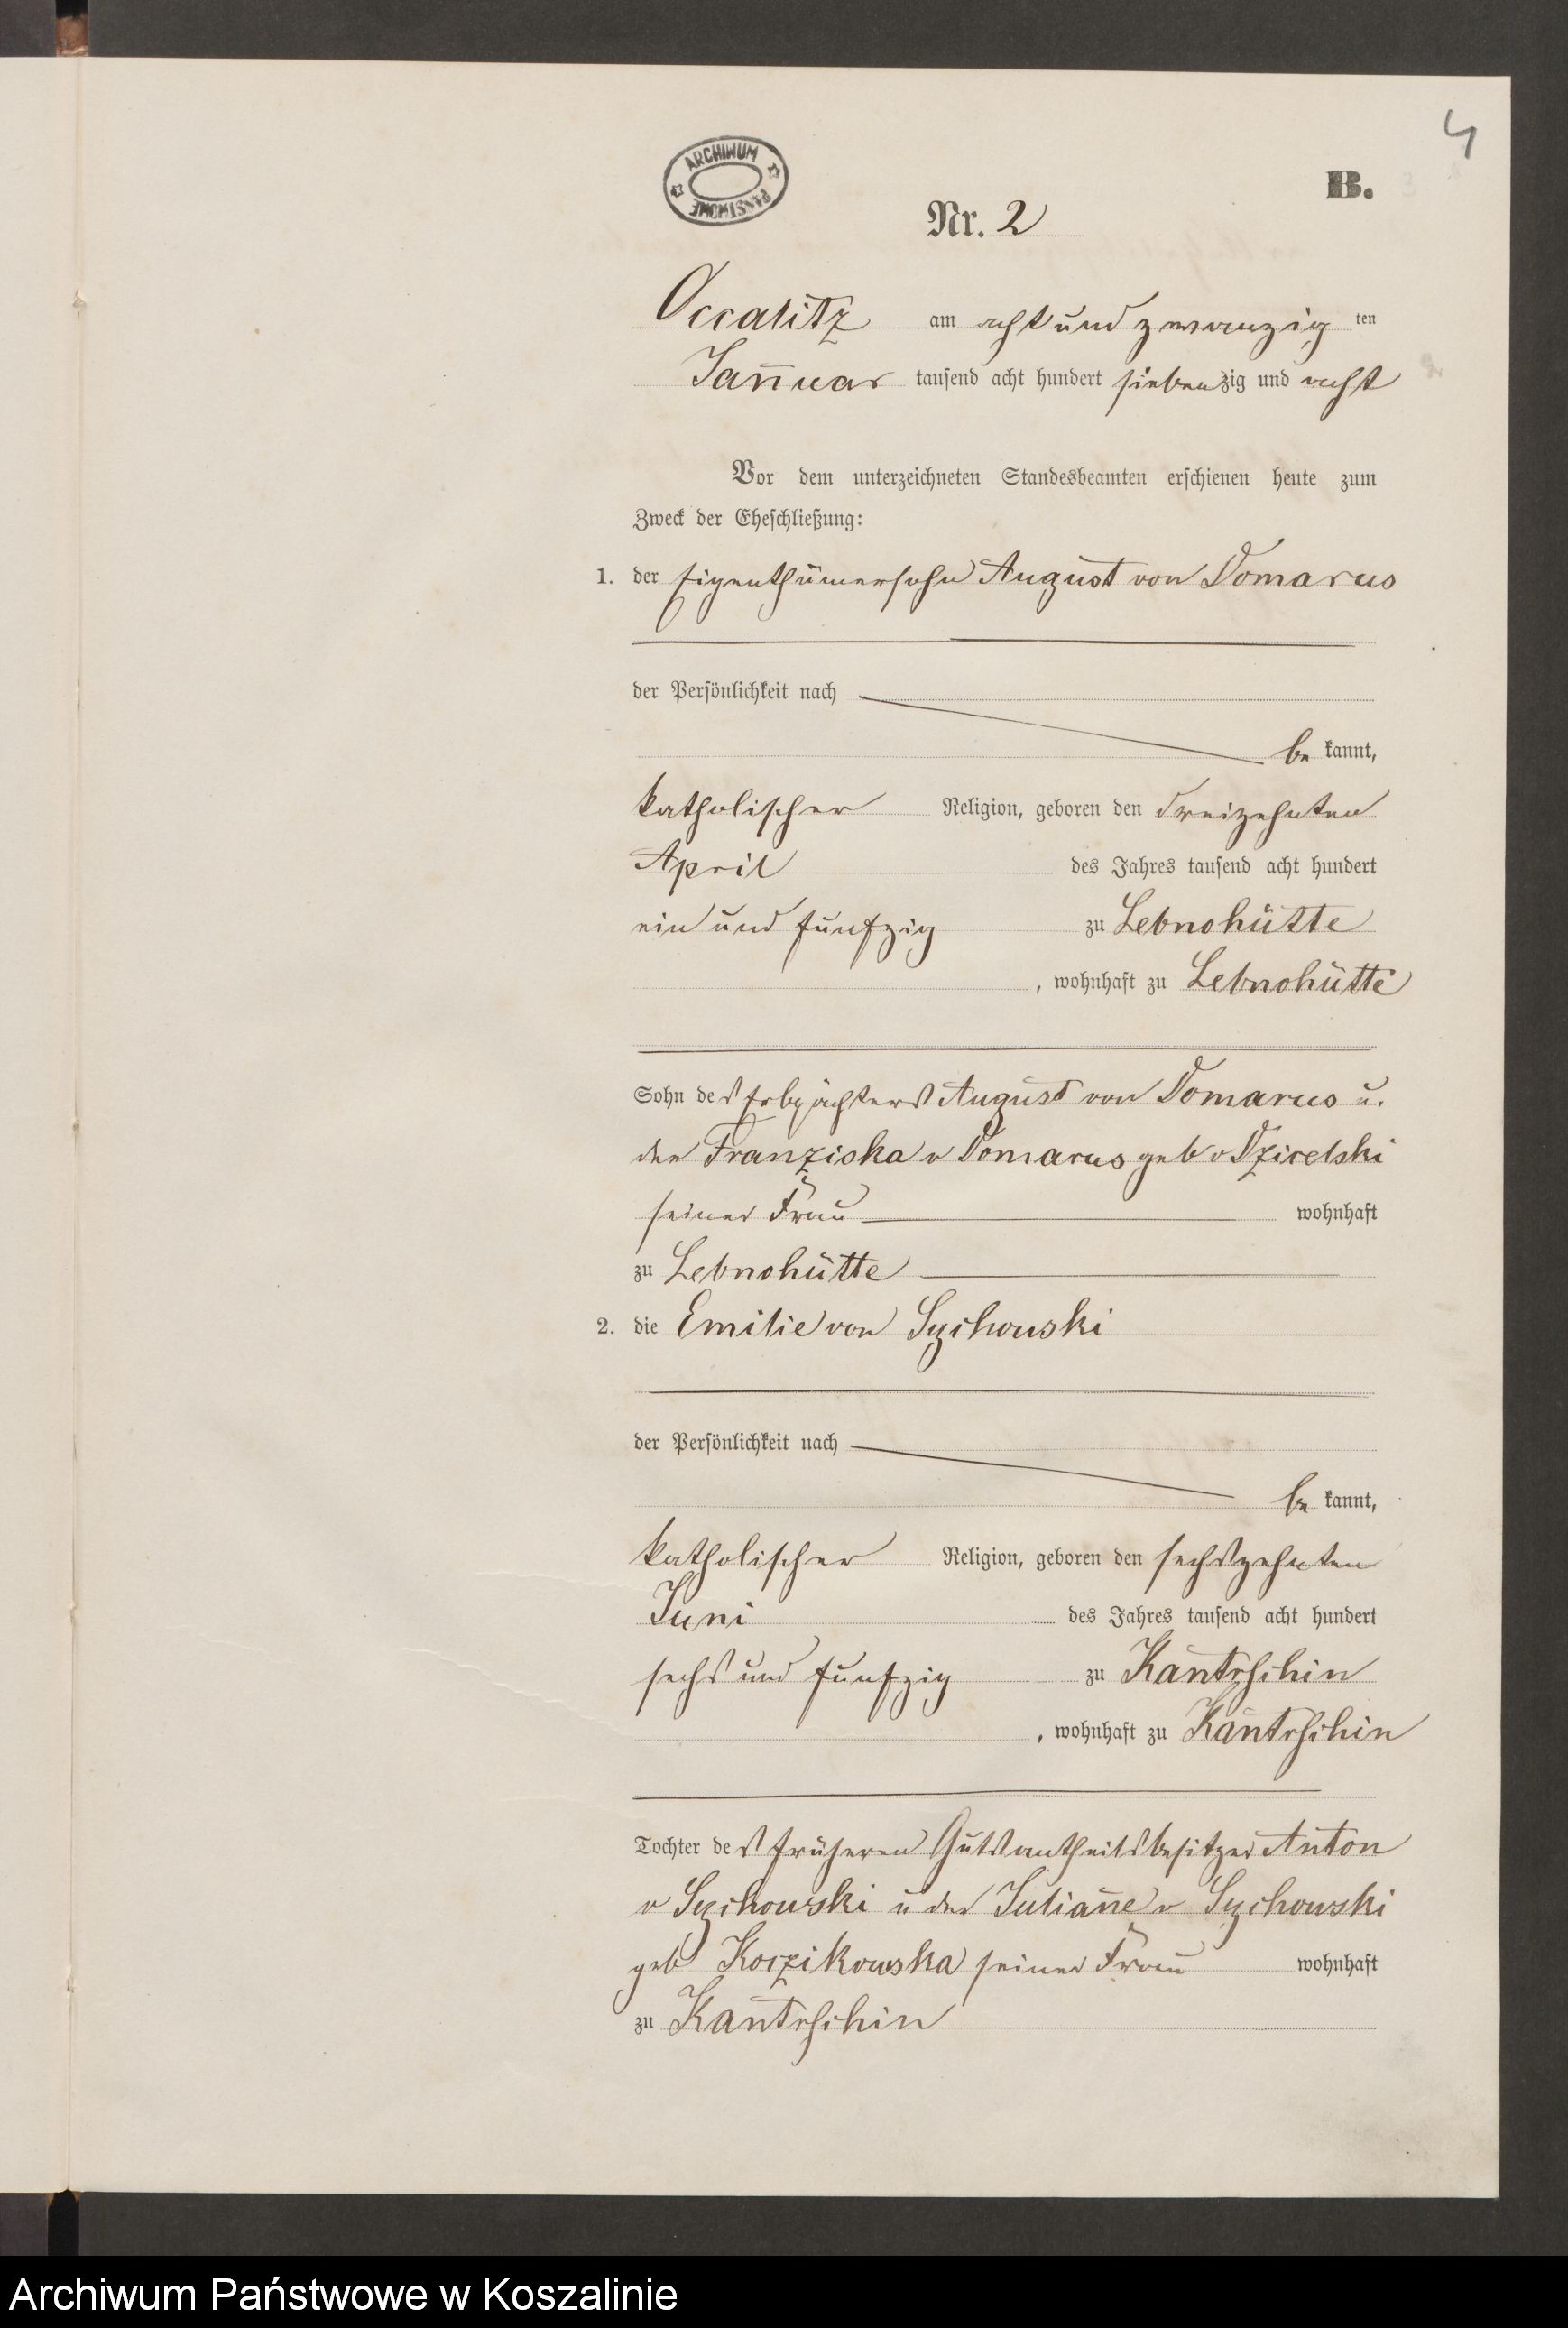 4
ARCHIWUM
PAŃSTWOWE
B.
Nr. 2
Occalitz am acht und zwanzig ten
Januar tausend acht hundert siebenzig und acht
Vor dem unterzeichneten Standesbeamten erschienen heute zum
Zweck der Eheschließung:
1. der Eigenthümersohn August von Domarus
der Persönlichkeit nach
be kannt,
katholischer Religion, geboren den dreizehnten
April des Jahres tausend acht hundert
ein und funfzig zu Lebnohütte
, wohnhaft zu Lebnohütte
Sohn des Erbpächters August von Domarus u.
der Franziska v Domarus geb v
seiner Frau wohnhaft
zu Lebnohütte
2. die Emilie von Sychowski
der Persönlichkeit nach
be kannt,
katholischer Religion, geboren den sechszehnten
Juni des Jahres tausend acht hundert
sechs und funfzig zu Kantrschin
, wohnhaft zu Kantrschin
Tochter des früheren Gutsantheilsbesitzer Anton
v Sychowski u der Juliane v Sychowski
geb Koczikowska seiner Frau wohnhaft
zu Kantrschin
Archiwum Państwowe w Koszalinie